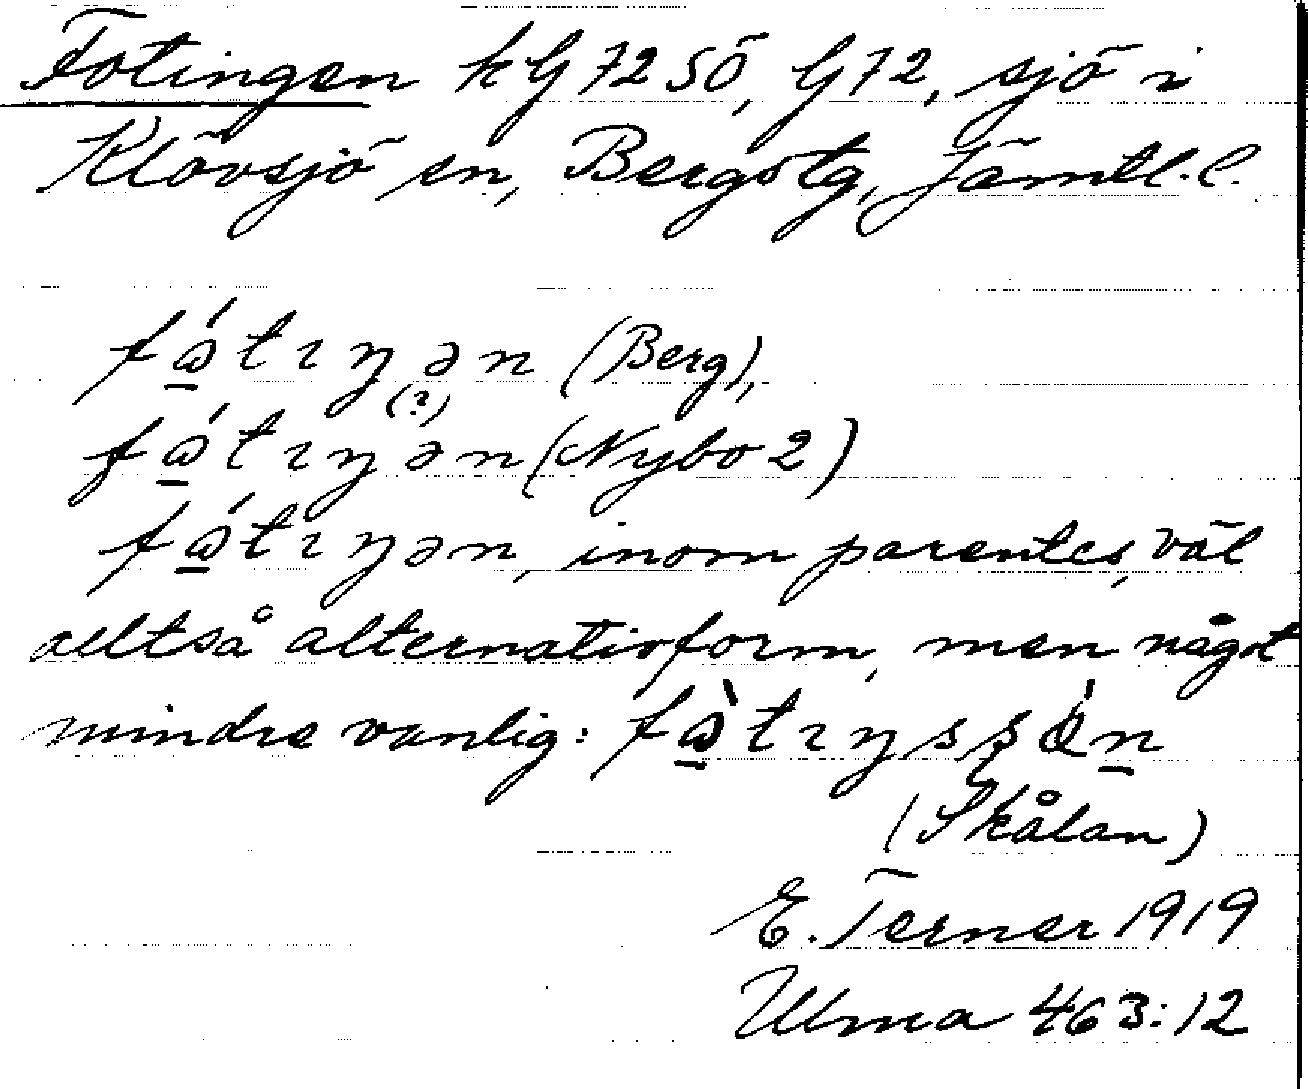 Fotingen kG72SÖ, G72, sjö i
Klövsjö sn, Bergs tg, Jämtl. l.
fɷ̲́tıŋən (Berg),
(?)
fɷ̲́tıŋən (Nybo 2)
fɷ̲́tıŋən, inom parentes, väl
alltså alternativform, men något
mindre vanlig:
(Skålan)
E. Terner 1919
Ulma 463:12